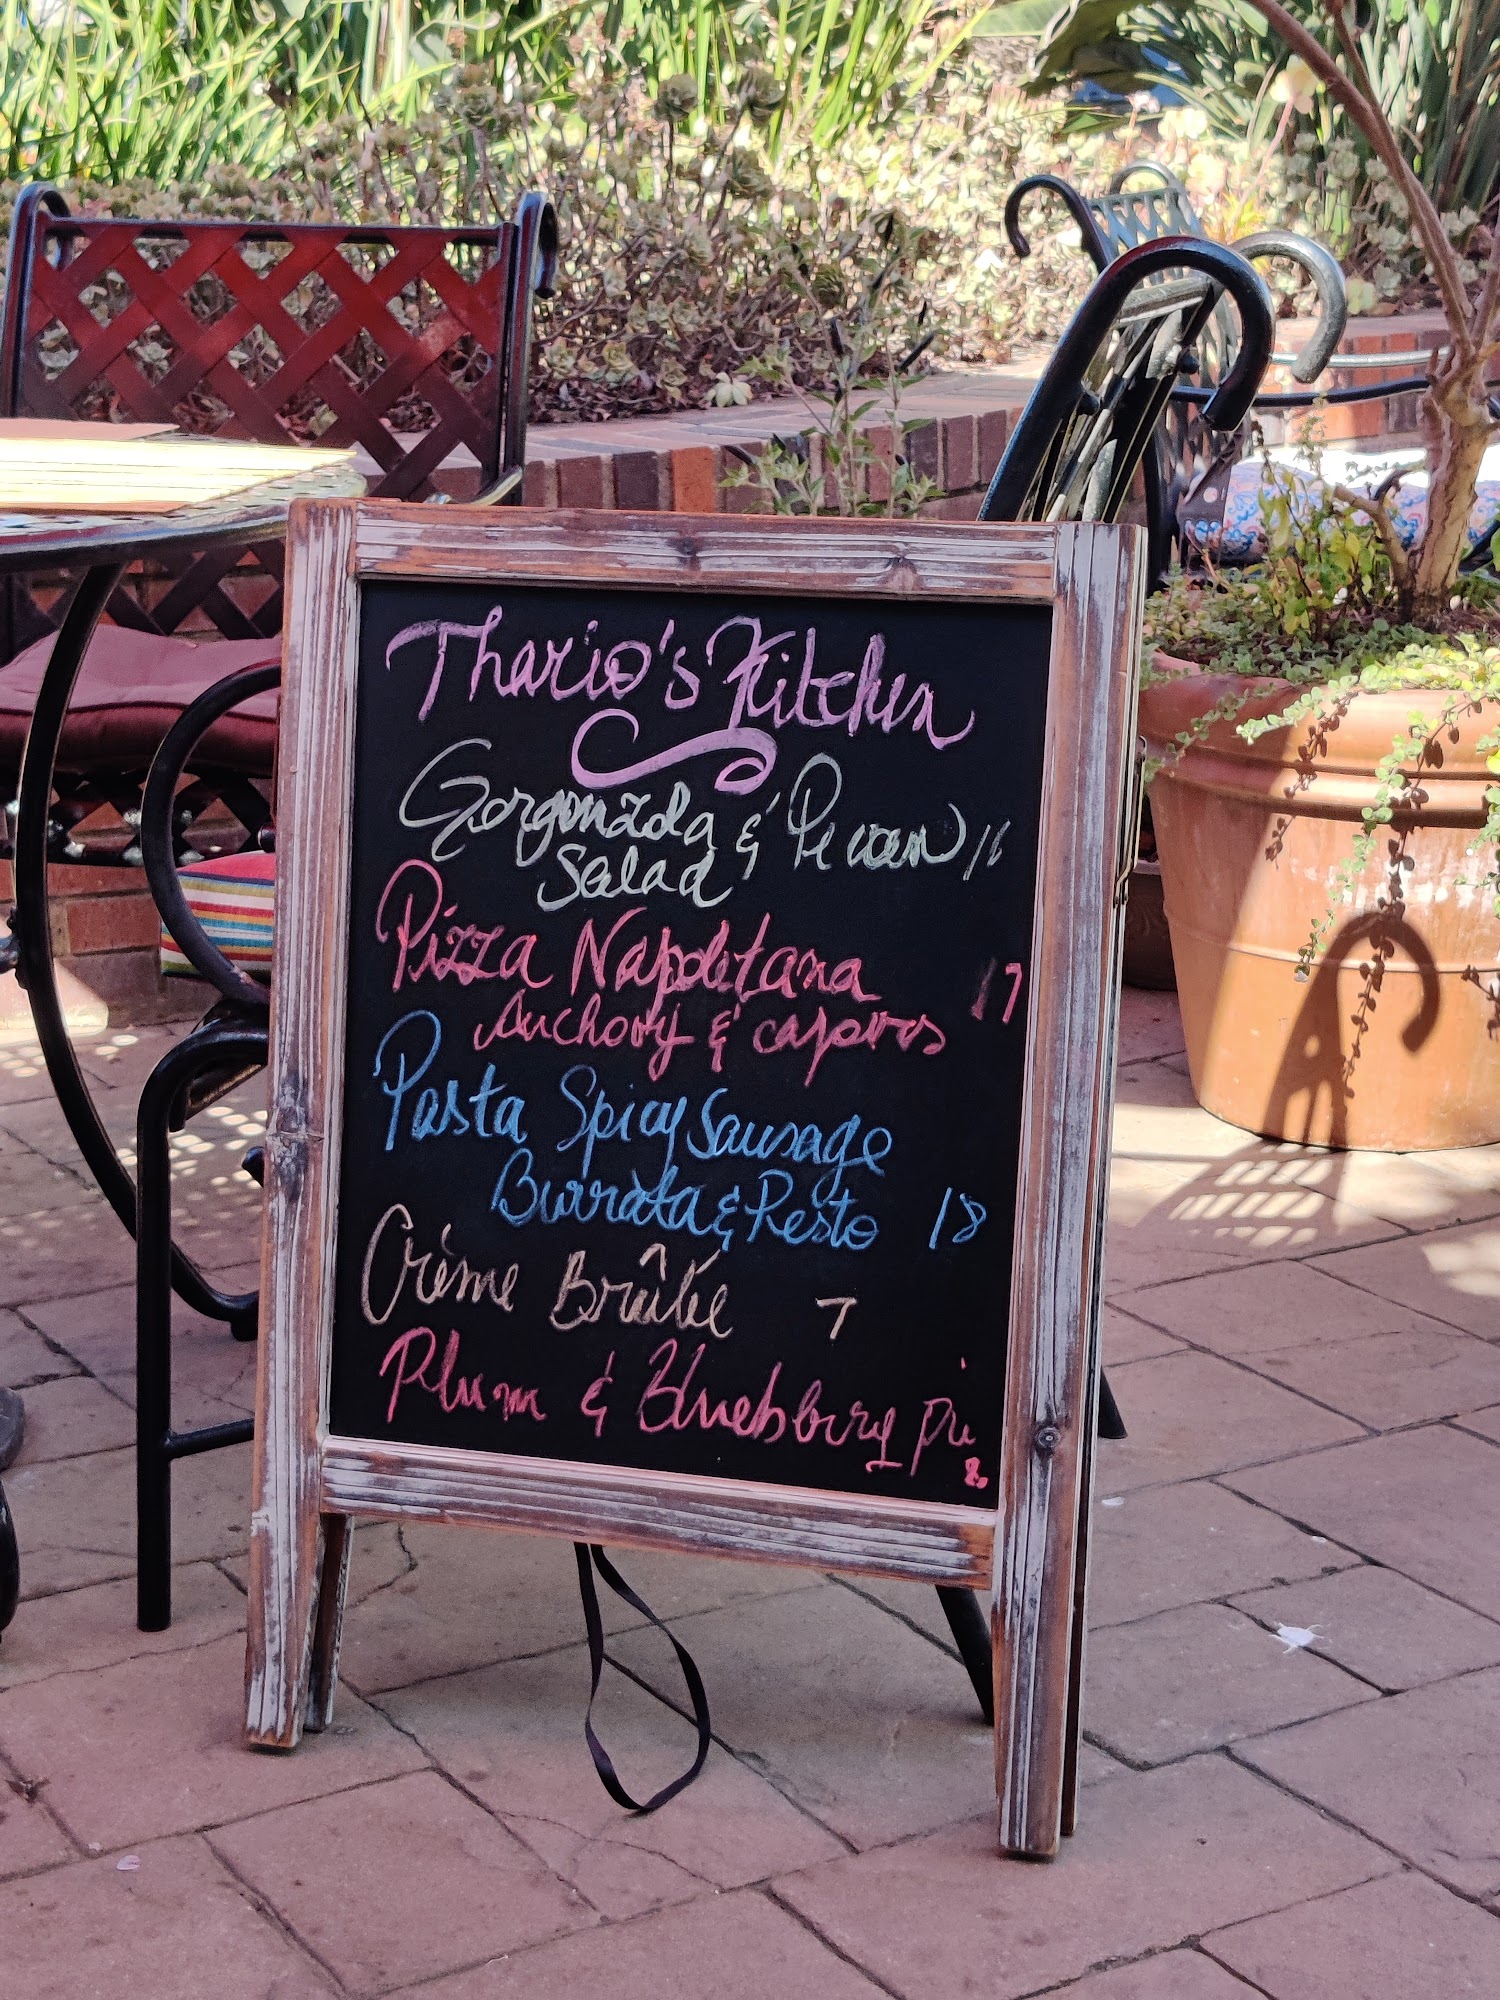 Thario's Kitchen
Gorgonzola & Pecan 16
Salad
Pizza Napolitana 17
Anchovy & capers
Pasta Spicy Sausage
Burrata & Pesto 18
Crème Brûlée 7
Plum & Bluebbery pie
8.